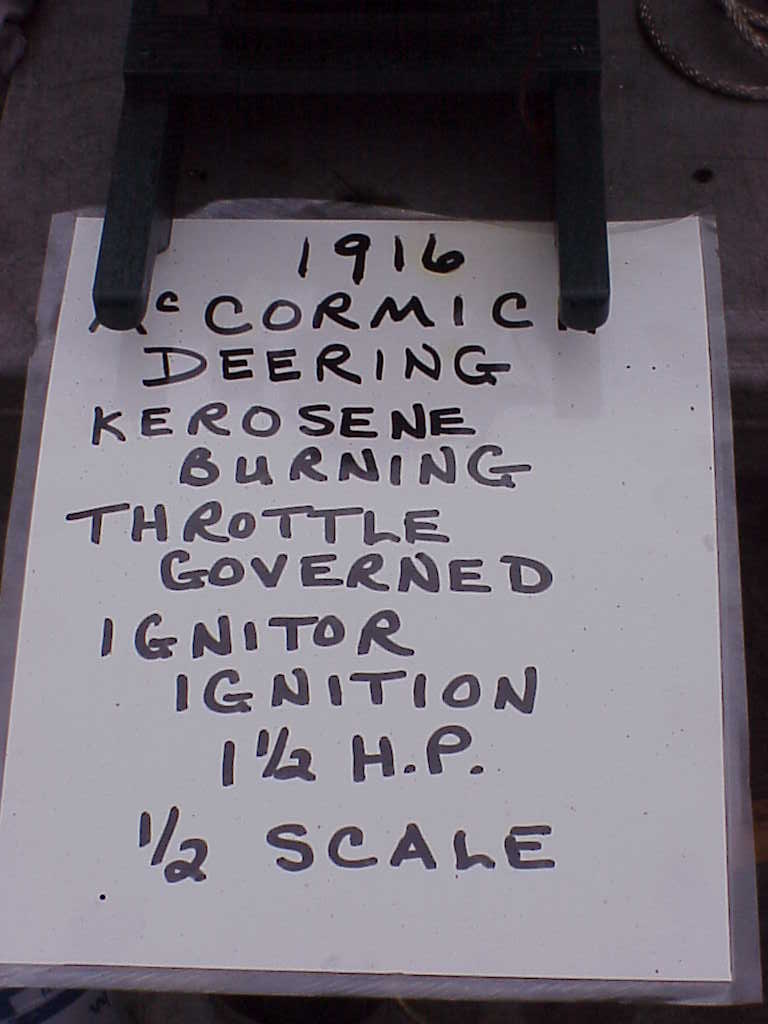 1916
McCORMICK
DEERING
KEROSENE
BURNING
THROTTLE
GOVERNED
IGNITOR
IGNITION
1 1/2 H.P.
1/2 SCALE